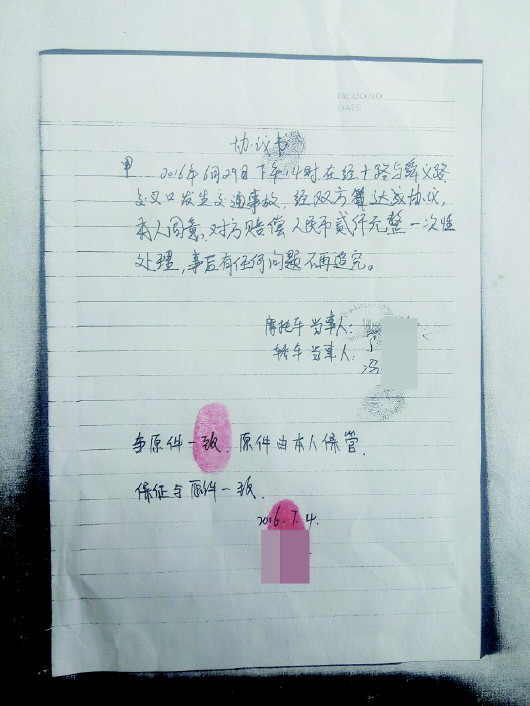 MEMO NO
DATE
协议书
2016年6月29日下午14时在经十路与舜义路
交叉口发生交通事故，经双方 达成协议，
本人同意，对方赔偿人民币贰仟元整一次性
处理，事后有任何问题不再追究。
摩托车当事人：
轿车当事人：
与原件一致，原件由本人保管，
保证与原件一致。
2016.7.4.